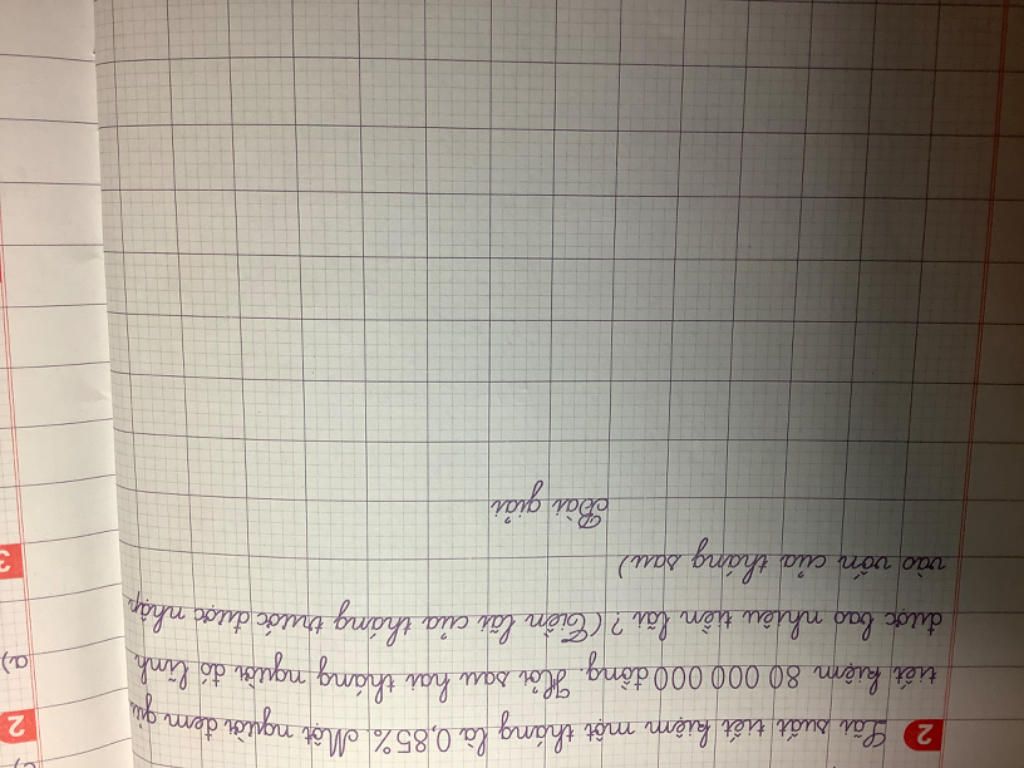 2 Lãi suất tiết kiệm một tháng là 0,85% Một người đem gửi
tiết kiệm 80 000 000 đồng. Hỏi sau hai tháng người đó lĩnh
được bao nhiêu tiền lãi? (Tiền lãi của tháng trước được nhập
vào vốn của tháng sau)
Bài giải
2
a)
3